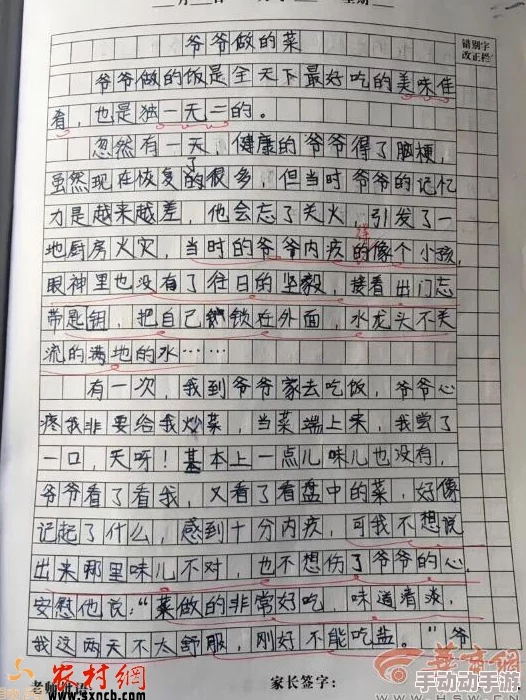 星期
错别字
改正栏
爷爷做的菜
爷爷做的饭是全天下最好吃的美味佳
肴，也是独一无二的。
忽然有一天，健康的爷爷得了脑梗，
虽然现在恢复了的很多，但当时爷爷的记忆
力是越来越差，他会忘了关火，引发了一
地厨房火灾，当时的爷爷内疚的像个小孩，
眼神里也没有了往日的坚毅，接着出门忘
带匙钥，把自己锁在外面，水龙头不关
流的满地的水……
有一次，我到爷爷家去吃饭，爷爷心
疼我非要给我炒菜，当菜端上来，我尝了
一口，天呀！基本上一点儿味儿也没有，
爷爷看了看我，又看了看盘中的菜，好像
记起了什么，感到十分内疚，可我不想说
出来那里味儿不对，也不想伤了爷爷的心，
安慰他说：“菜做的非常好吃，味道清淡，
我这两天不太舒服，刚好不能吃盐。”爷
家长签字：
农村網
www.sxncb.com
华商网
手动动手游